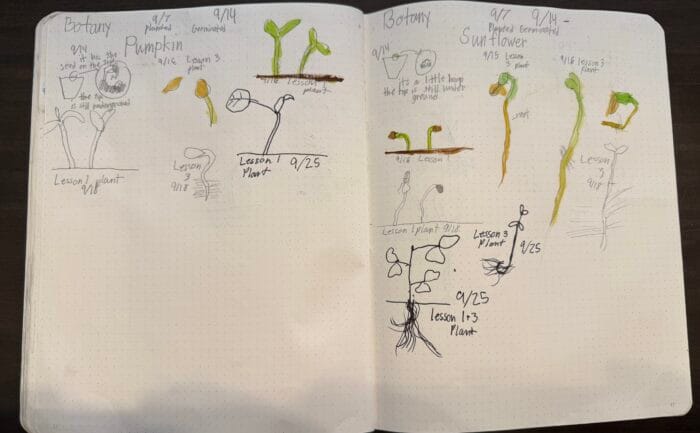 Botany
9/7
Planted
9/14
Germinated
Pumpkin
9/14
it has the
seed on the top
the top
is still underground
9/16
Lesson 3
plant
9/16 Lesson 1
plant
Lesson 1 plant
9/18
Lesson
3
9/18
Lesson 1
Plant
9/25
Botany
9/7
Planted
9/14 -
Germinated
Sunflower
9/14
It's a little loop
the top is still under
ground
9/15
Lesson
3 plant
root
9/16 lesson 3
plant
9/16 Lesson 1
Lesson 1 plant 9/18
Lesson
3
9/18
Lesson 3
Plant
9/25
9/25
lesson 1+3
Plant